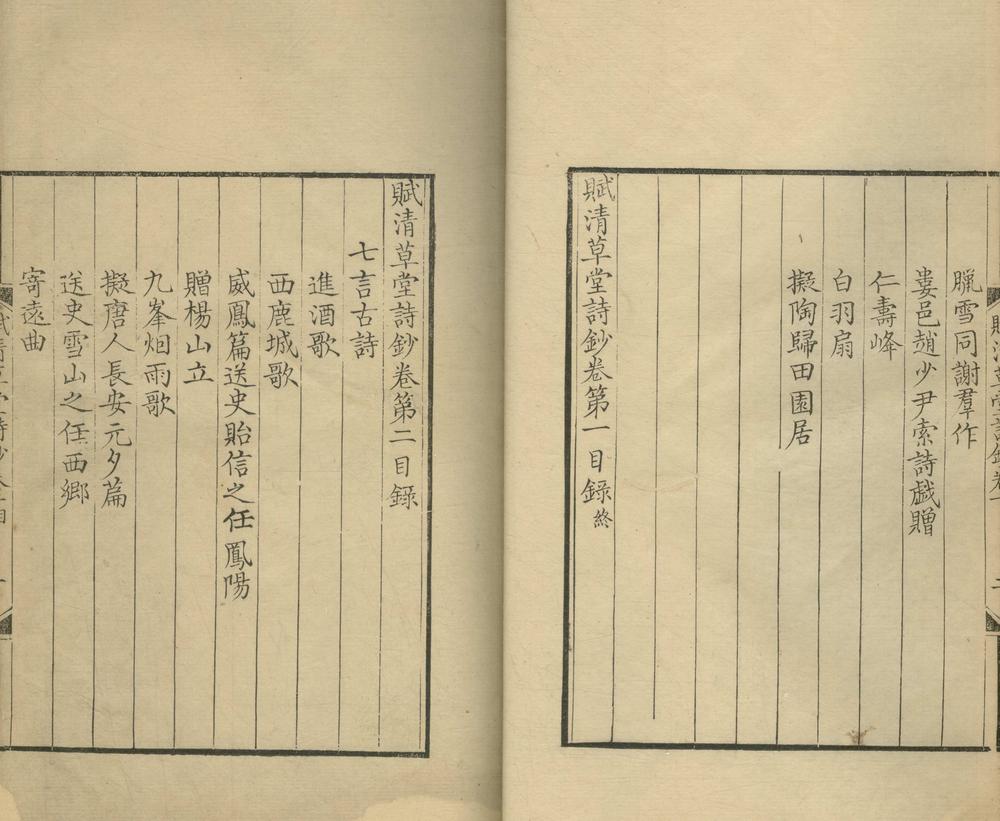 臘雪同謝羣作
婁邑趙少尹索詩戲贈
仁壽峰
白羽扇
擬陶歸田園居
賦清草堂詩鈔卷第一目錄終
賦清草堂詩鈔卷第二目錄
七言古詩
進酒歌
西鹿城歌
威鳳篇送史貽信之任鳳陽
贈楊山立
九峯烟雨歌
擬唐人長安元夕篇
送史雪山之任西鄉
寄遠曲